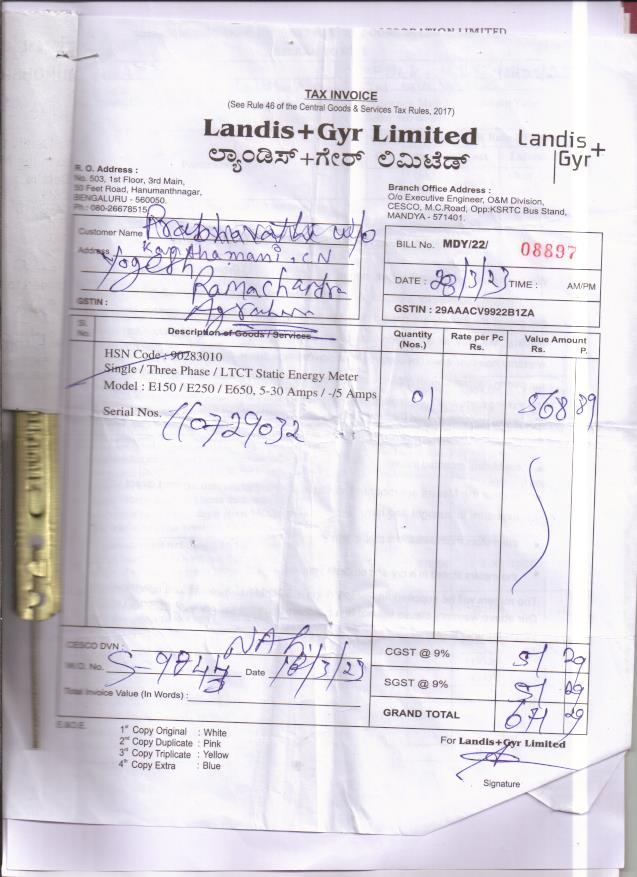 TAX INVOICE
(See Rule 46 of the Central Goods & Services Tax Rules, 2017)
Landis+Gyr Limited
ಲ್ಯಾಂಡಿಸ್+ಗೇರ್ ಲಿಮಿಟೆಡ್
Landis+
Gyr
R. O. Address :
No. 503, 1st Floor, 3rd Main,
50 Feet Road, Hanumanthnagar,
BENGALURU - 560050.
Ph : 080-26678515
Branch Office Address :
O/o Executive Engineer, O&M Division,
CESCO, M.C.Road, Opp:KSRTC Bus Stand,
MANDYA - 571401.
Customer Name Prabhavathi w/o
Address Kapanhamani . C N
Yogesh
Ramachandra
Agrahara
GSTIN :
BILL No. MDY/22/ 08897
DATE : 28/3/23 TIME : AM/PM
GSTIN : 29AAACV9922B1ZA
Sl. No. Description of Goods / Services Quantity (Nos.) Rate per Pc Rs. Value Amount Rs. P.
HSN Code : 90283010
Single / Three Phase / LTCT Static Energy Meter
Model : E150 / E250 / E650, 5-30 Amps / -/5 Amps 01 568 89
Serial Nos. 110729032
CESCO DVN :
W.O. No. Date 18/3/23
Total Invoice Value (In Words) :
CGST @ 9% 51 29
SGST @ 9% 51 29
GRAND TOTAL 671 29
E.&O.E.
1st Copy Original : White
2nd Copy Duplicate : Pink
3rd Copy Triplicate : Yellow
4th Copy Extra : Blue
For Landis+Gyr Limited
Signature